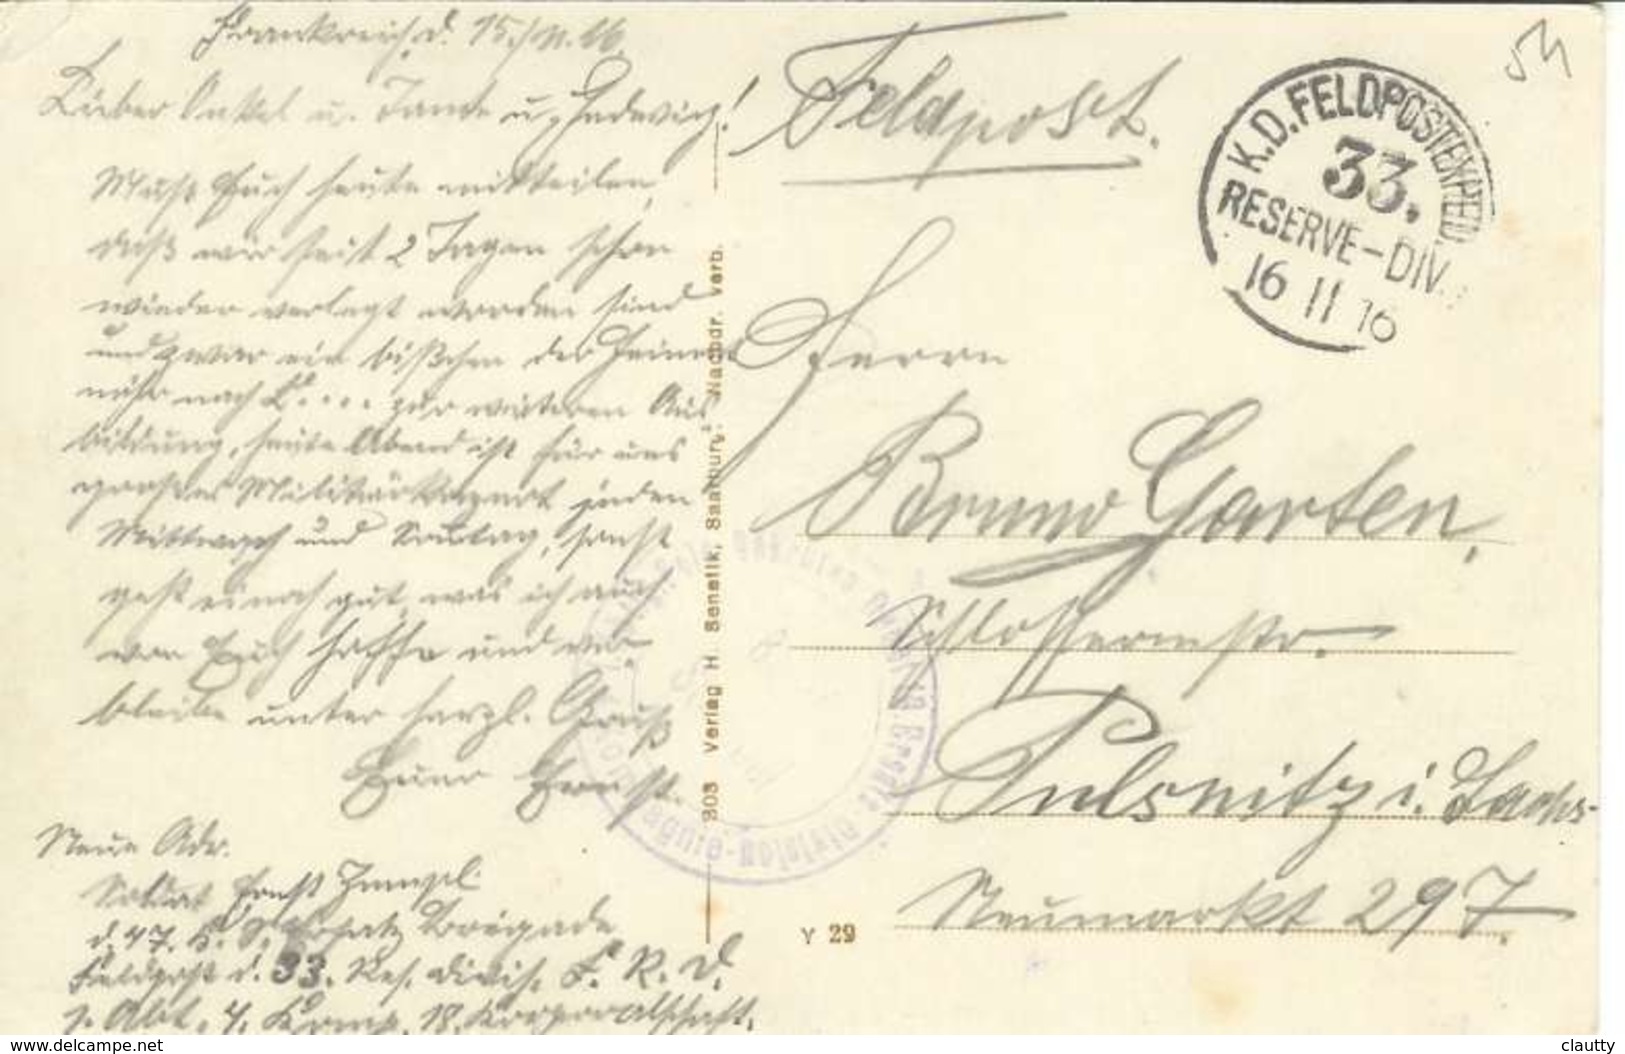 Frankreich, d. 15./11.16.
Lieber Onkel u. Tante u. Hedwig!
Muß Euch heute mitteilen,
daß wir seit 2 Tagen schon
wieder verlegt worden sind
und zwar ein bißchen der Heimat
näher nach L.... zur weiteren Aus
bildung, heute Abend ist für uns
großes Militärkonzert jeden
Mittwoch und Sonntag, sonst
geht es noch gut, was ich auch
von Euch hoffe und ver
bleibe unter herzl. Gruß
Euer Ernst.
Neue Adr.
Soldat Ernst
d. 47. Ersatz Brigade
Feldpost d. 33. Res. Divis. F. R. D.
2. Abt. 4. Komp. 18. Korporalschaft.
Feldpost.
K.D.FELDPOSTEXPED.
33.
RESERVE-DIV.
16 11 16
54
Herrn
Bruno Garten,
Schlossermstr.
Pulsnitz i. Sachs-
Neumarkt 297.
303 Verlag H. Senetik, Saarburg. Nachdr. verb.
Y 29
www.delcampe.net
clautty